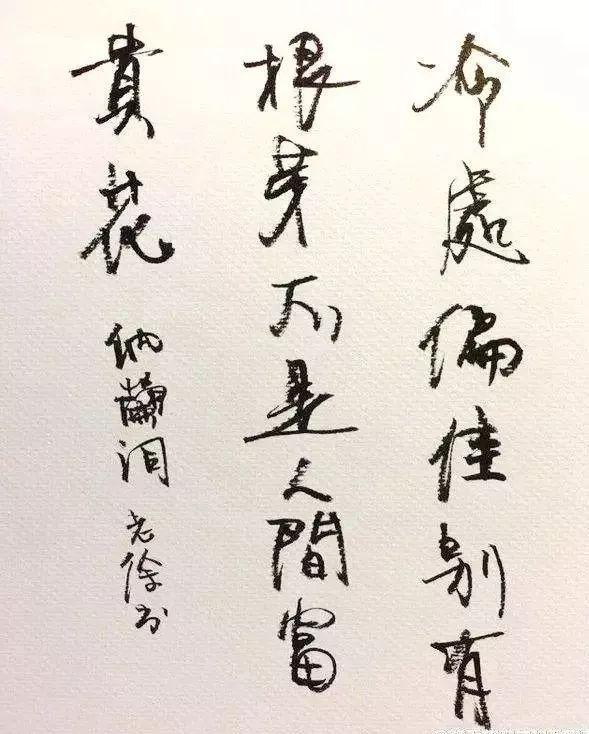 冷處偏佳别有
根芽不是人間富
貴花 納蘭词 老徐书